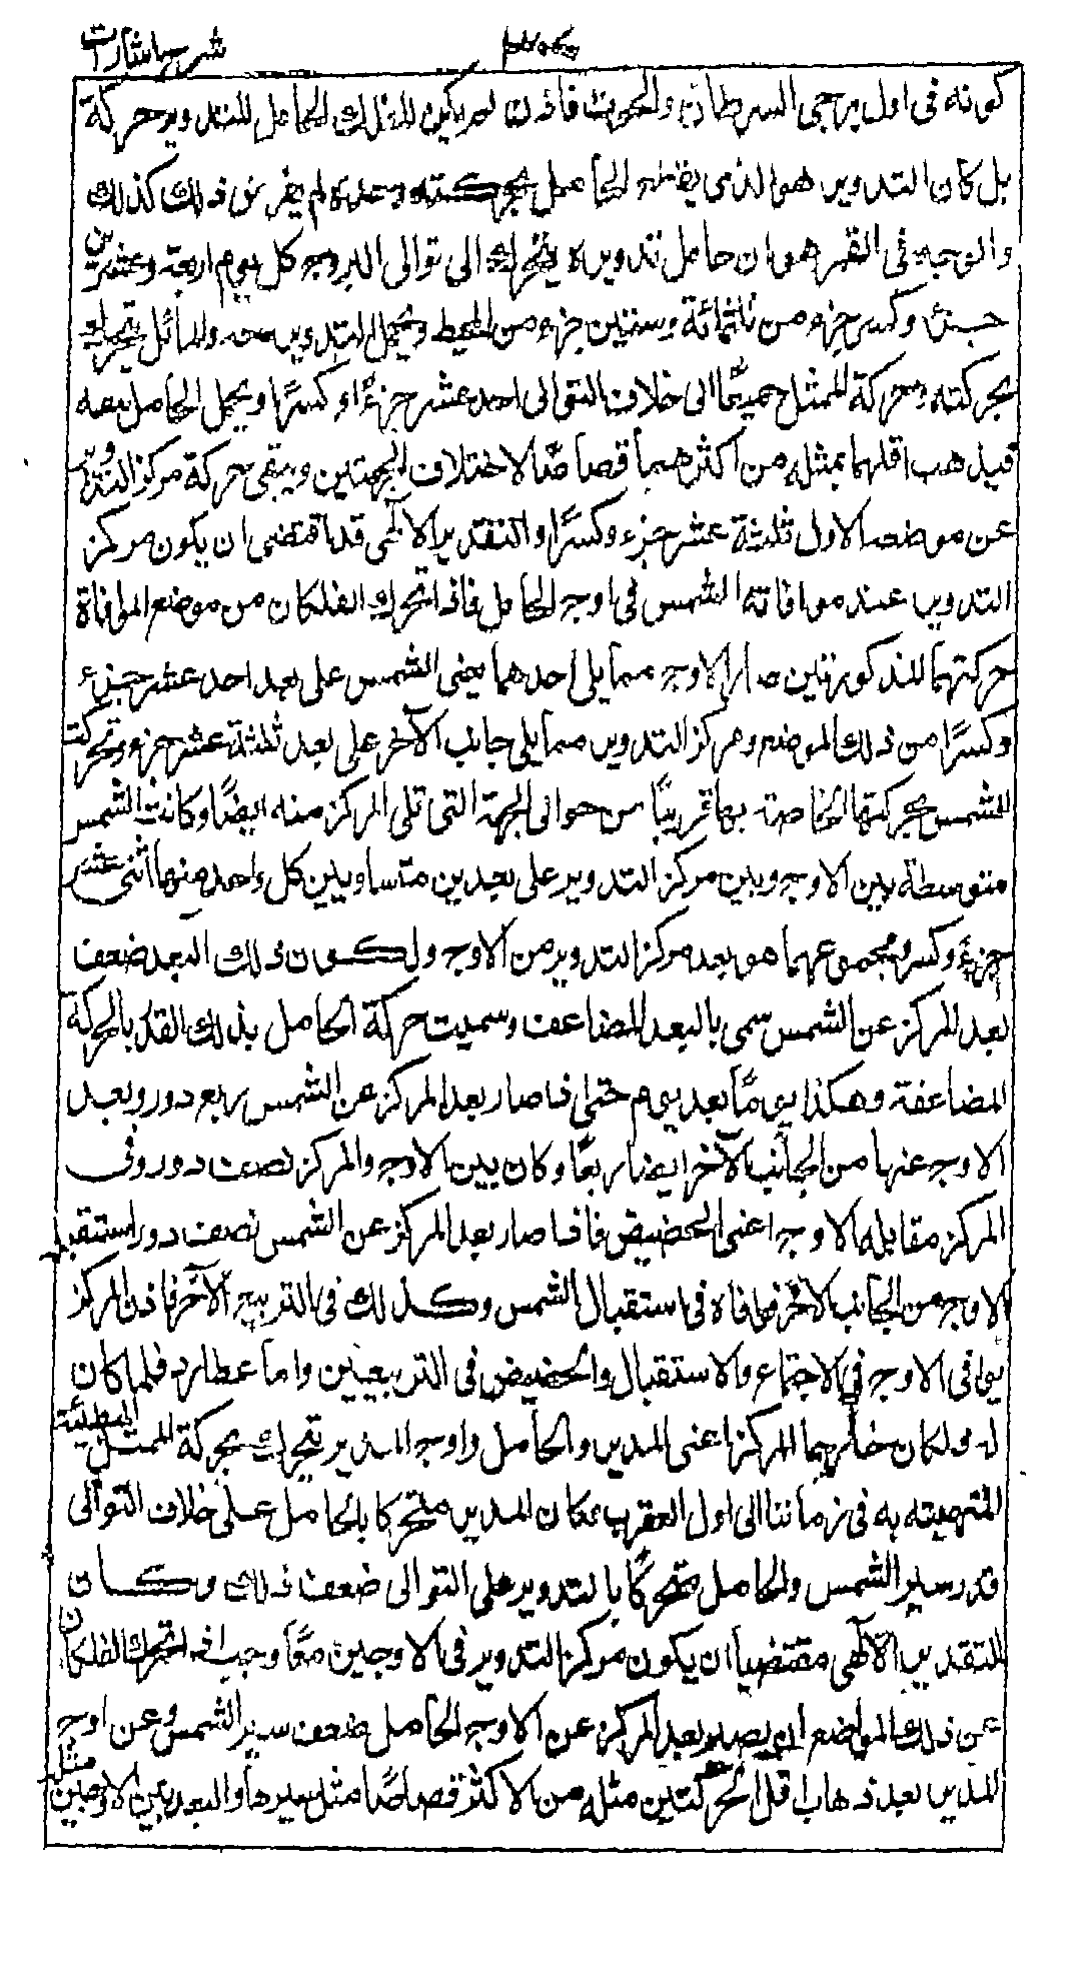 شرح اشارات
كونه فى اول برجى السرطان والحوت فاذن لم يكن للفلك الحامل للتدوير حركة
بل كان التدوير هو الذى يقطع الحامل بحركته وحده لم يعرض ذلك كذلك
والوجه فى القمر هو ان حامل تدويره يتحرك الى توالى البروج كل يوم اربعة وعشرين
جزءا وكسر جزء من ثلثمائة وستين جزء من المحيط ويحمل التدوير معه والمائل يتحرك
بحركته وحركة الممثل جميعًا الى خلاف التوالى احد عشر جزءً او كسرًا ويحمل الحامل معه
فيذهب اقلهما بمثله من اكثرهما قصاصًا لاختلاف الجهتين ويبقى حركة مركز التدوير
عن موضعه الاول ثلثة عشر جزء وكسرًا والتقدير الالٓهى قد اقتضى ان يكون مركز
التدوير عند موافاته الشمس فى اوج الحامل فاذا تحرك الفلكان من موضع الموافاة
حركتهما المذكورتين صار الاوج مما يلى احدهما يعنى الشمس على بعد احد عشر جزء
وكسرًا من ذلك الموضع ومركز التدوير مما يلى جانب الآخر على بعد ثلثة عشر جزء وتحركت
الشمس بحركتها الخاصة بها قريبًا من حوالى الجهة التى تلى المركز منه ايضًا وكانت الشمس
متوسطة بين الاوج وبين مركز التدوير على بعدين متساويين كل واحد منها اثنى عشر
جزءً وكسر ومجموعهما هو بعد مركز التدوير من الاوج ولكون ذلك البعد ضعف
بعد المركز عن الشمس سمى بالبعد المضاعف وسميت حركة الحامل بذلك القدر بالحركة
المضاعفة وهكذا يومًا بعد يوم حتى اذا صار بعد المركز عن الشمس ربع دور وبعد
الاوج عنها من الجانب الآخر ايضا ربعًا وكان بين الاوج والمركز نصف دور وفى
المركز مقابله الاوج اعنى الحضيض فاذا صار بعد المركز عن الشمس نصف دور استقبله
الاوج من الجانب الآخر فوافاه فى استقبال الشمس وكذلك فى التربيع الآخر فاذن المركز
يوافى الاوج فى الاجتماع والاستقبال والحضيض فى التربيعين واما عطارد فلما كان
له فلكان خارجا المركز اعنى المدير والحامل واوج المدير تتحرك بحركة الممثل البطيئة
المنتهيته به فى زماننا الى اول العقرب مكان المدير متحركا بالحامل على خلاف التوالى
قدر سير الشمس والحامل متحركًا بالتدوير على التوالى ضعف ذلك وكان
التقدير الآلهى مقتضيا ان يكون مركز التدوير فى الاوجين معًا وجب اذ تحرك الفلكان
عن ذلك المواضع ان يصير بعد المركز عن الاوج الحامل ضعف سير الشمس وعن اوج
المدير بعد ذهاب اقل الحركتين مثله من الاكثر قصاصًا مثل سيرها والبعد بين الاوجين مثل